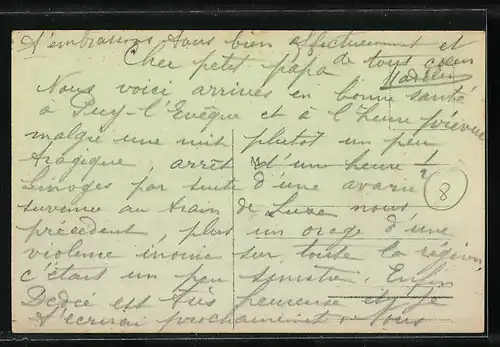 t'embrassons tous bien affectueusement et
de tous cœur
Cher petit papa
Nous voici arrivés en bonne santé
à Puy-l'Evêque et à l'heure prévue
malgré une nuit plutôt un peu
tragique, arrêt d'un heure 1/2
Limoges par suite d'une avarie
survenue au train de Luxe nous
précédent, plus un orage d'une
violence inouie sur toute la région,
c'était un peu sinistre. Enfin
Dédée est très heureuse et je
t'écrirai prochainement. Nous
8